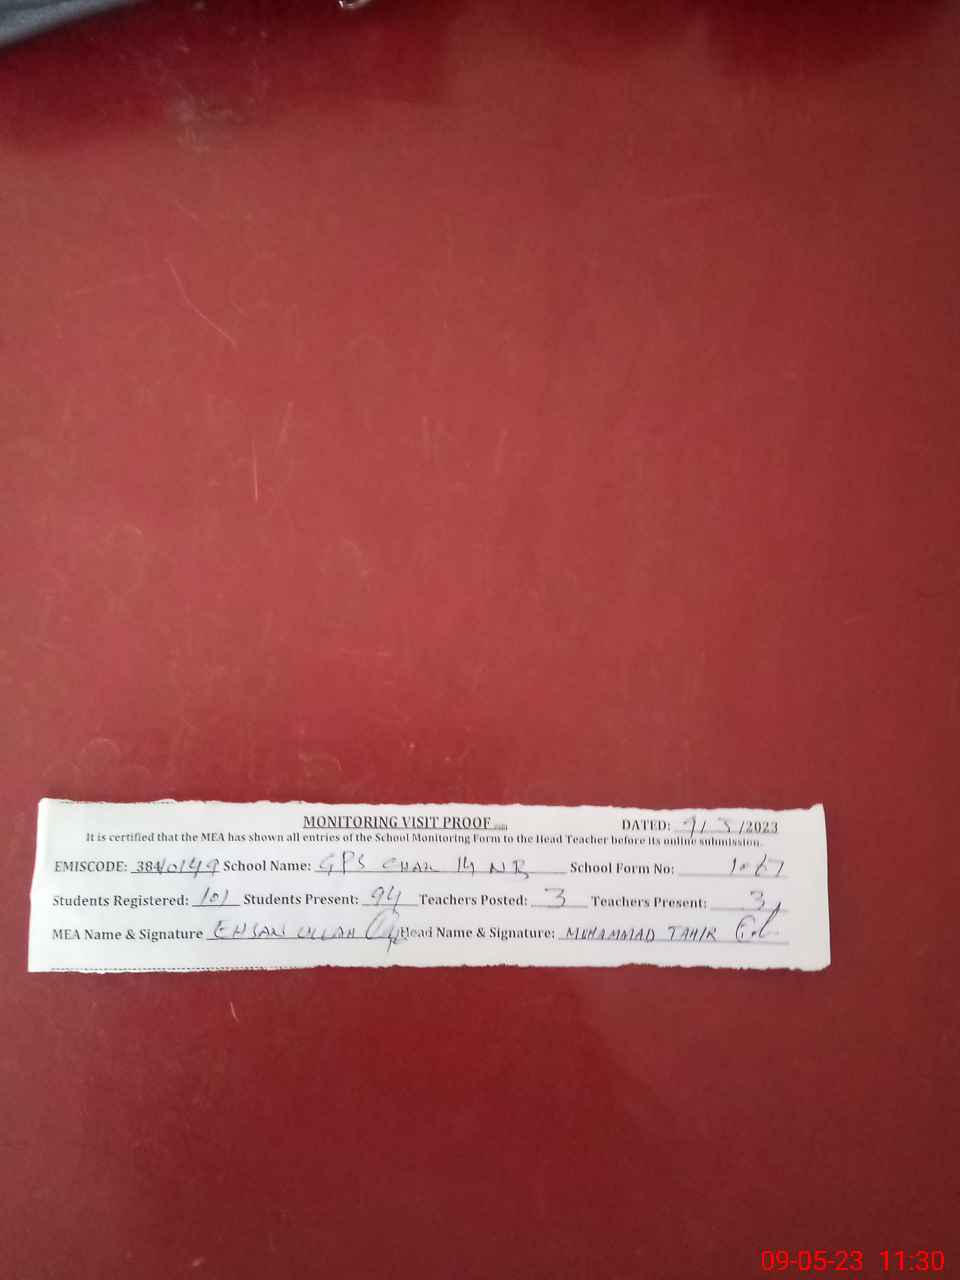 MONITORING VISIT PROOF DATED: 9/5/2023
It is certified that the MEA has shown all entries of the School Monitoring Form to the Head Teacher before its online submission.
EMISCODE: 38410149 School Name: GPS CHAK 14 NB School Form No: 1067
Students Registered: 101 Students Present: 94 Teachers Posted: 3 Teachers Present: 3
MEA Name & Signature EHSAN ULLAH Head Name & Signature: MUHAMMAD TAHIR
09-05-23 11:30